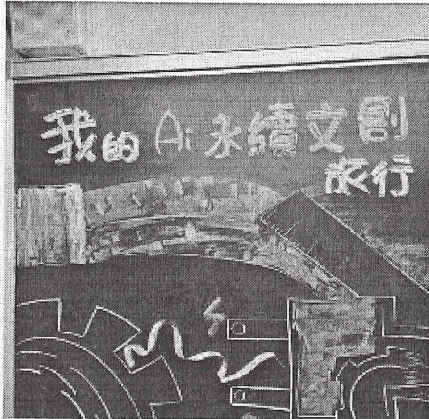 我的Ai永續文創
旅行